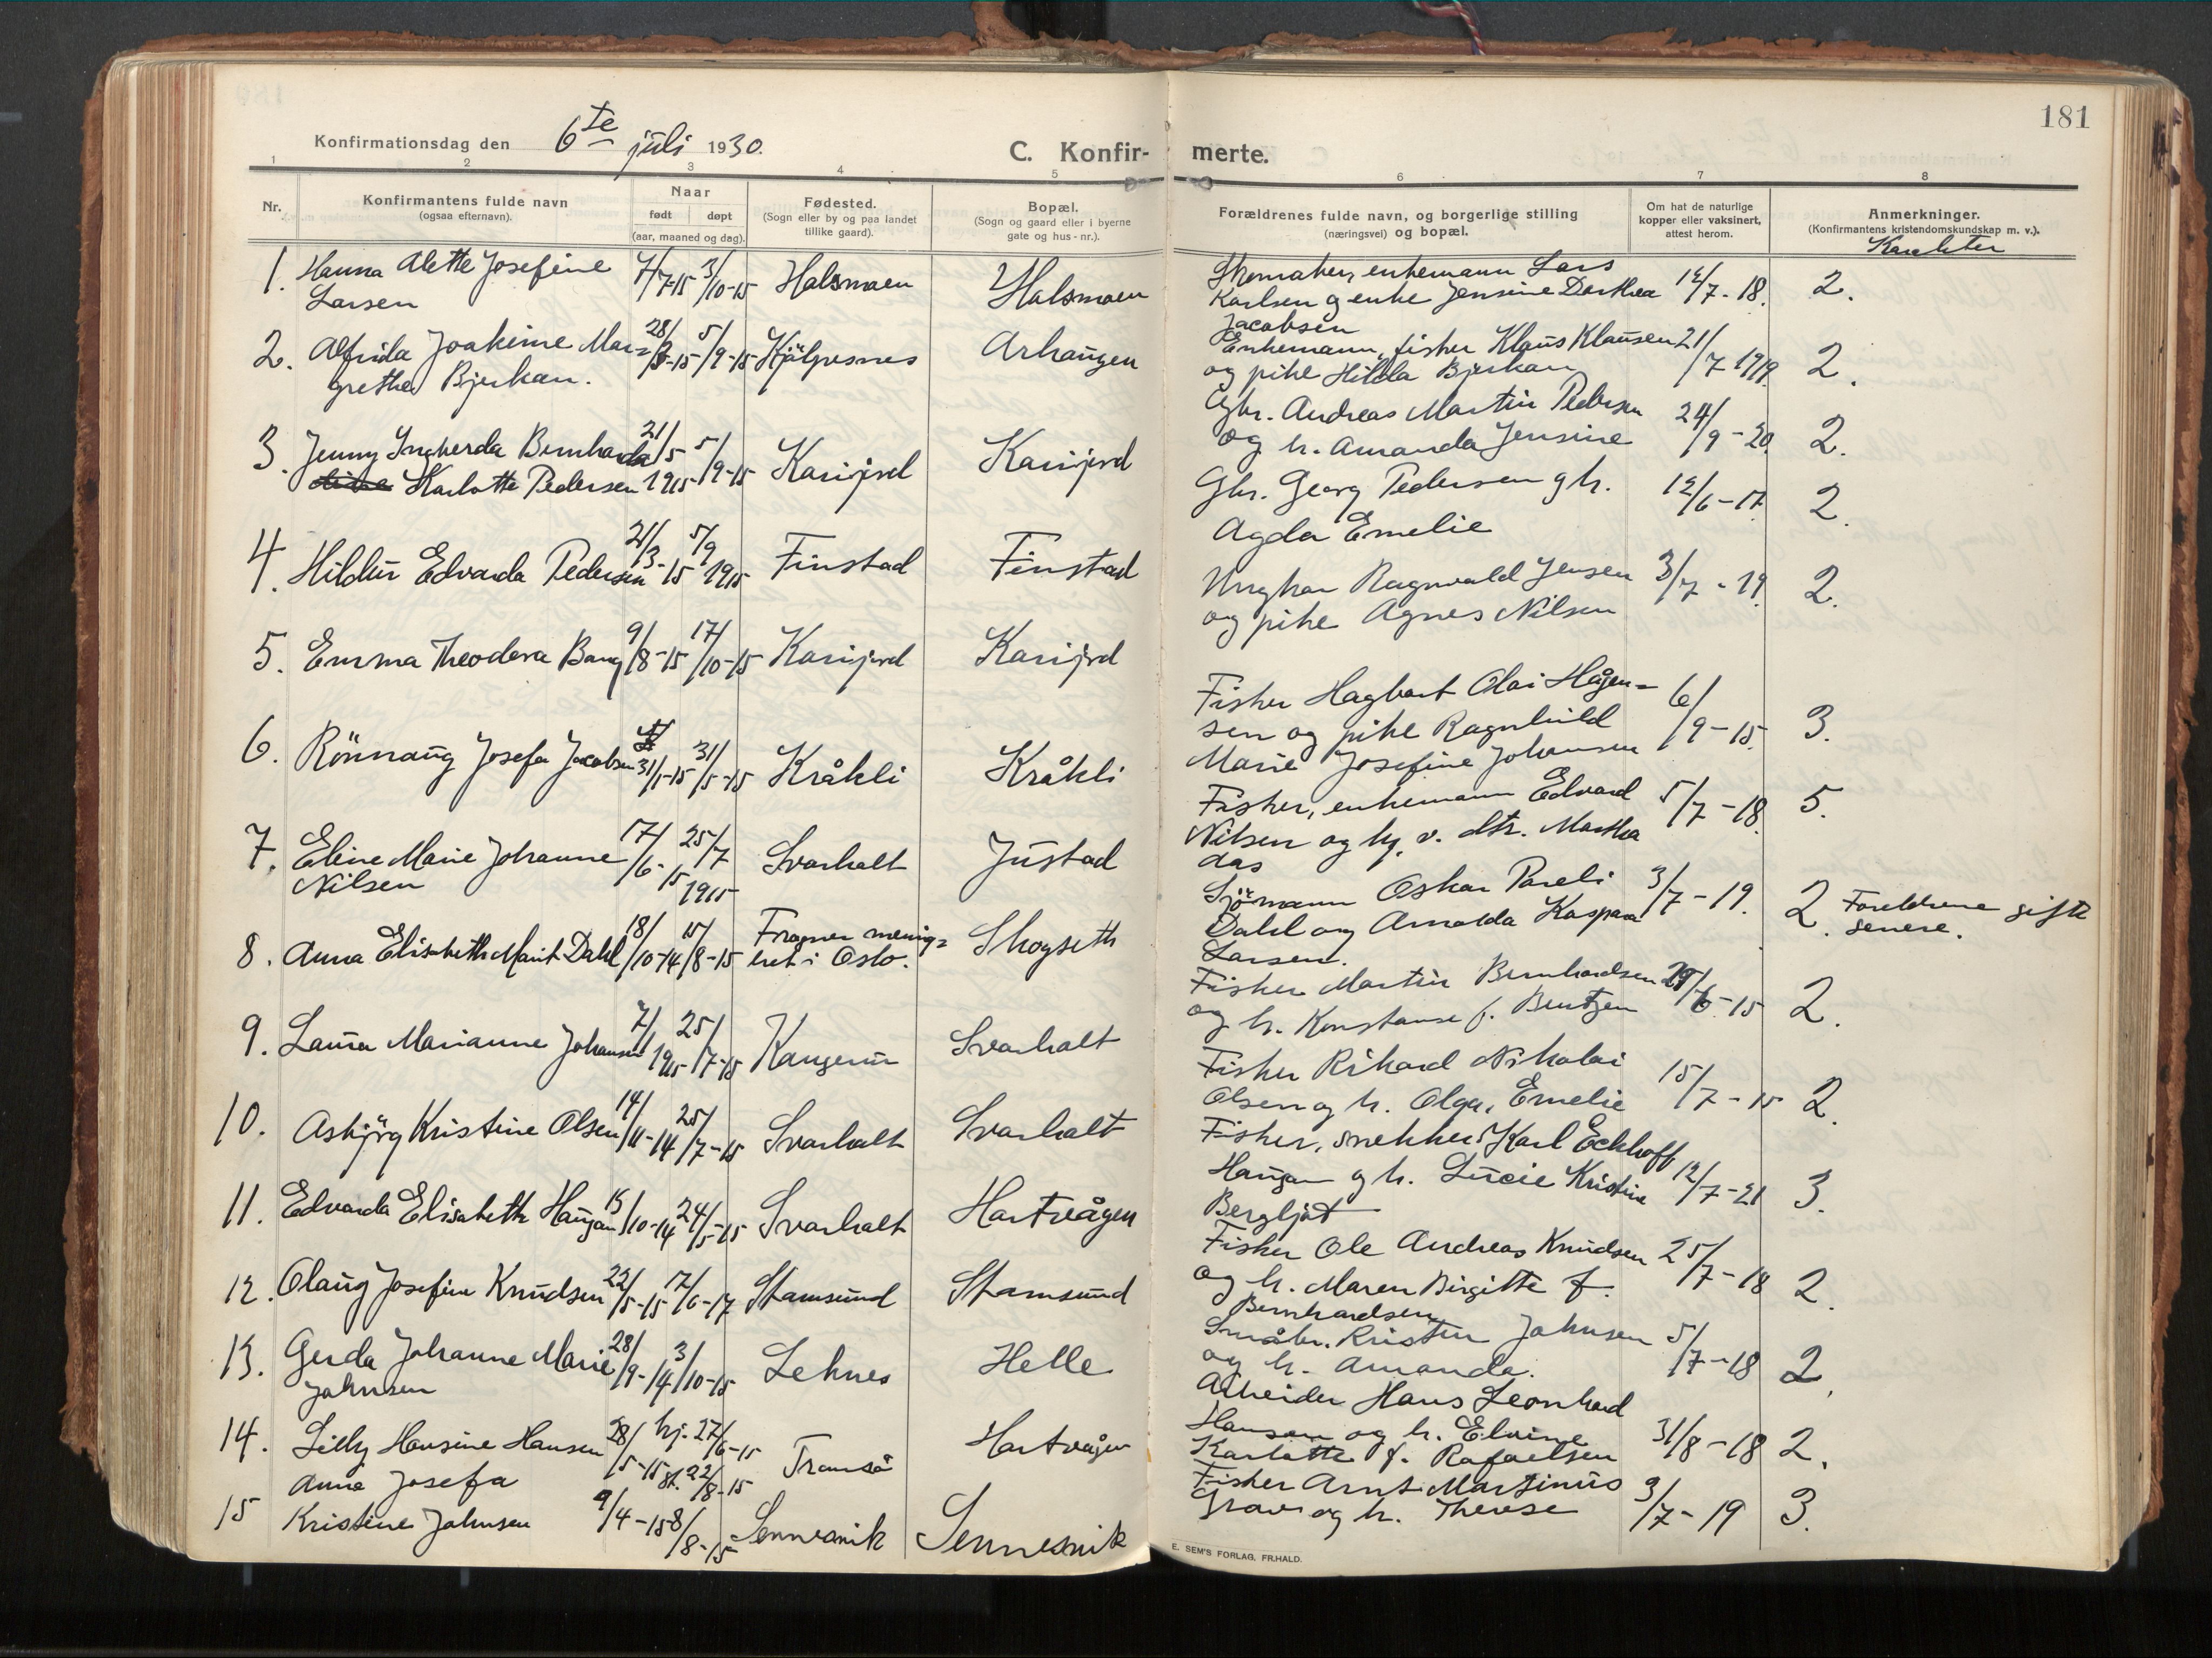 181
Konfirmationsdag den 6te juli 1930.
C. Konfir-merte.
1 2 3 4 5 6 7 8
Nr.
Konfirmantens fulde navn
(ogsaa efternavn).
Naar
født døpt
(aar, maaned og dag).
Fødested.
(Sogn eller by og paa landet
tillike gaard).
Bopæl.
(Sogn og gaard eller i byerne
gate og hus-nr.).
Forældrenes fulde navn, og borgerlige stilling
(næringsvei) og bopæl.
Om hat de naturlige
kopper eller vaksinert,
attest herom.
Anmerkninger.
(Konfirmantens kristendomskundskap m. v.).
Karakter
1. Hanna Alette Josefine
Larsen
7/7-15 3/10-15 Halsmoen Halsmoen
Skomaker, enkemann Lars
Karlsen og enke Jensine Dorthea
Jacobsen
12/7-18. 2.
2. Alfrida Joakime Mar=
grethe Bjerkan.
28/ -15 5/9-15 Kjølpesnes Arhaugen
Enkemann, fisker Klaus Klausen
og pike Hilda Bjerkan
21/7 1919. 2.
3. Jenny Ingherda Bernharda
Karlotte Pedersen
21/5 1915 5/9-15 Karijord Karijord
Gbr. Andreas Martin Pedersen
og h. Amanda Jensine
24/9-20. 2.
4. Hildur Edvarda Pedersen
21/3-15 5/9 1915 Finstad Finstad
Gbr. Georg Pedersen og h.
Agda Emelie
12/6-17. 2.
5. Emma Theodora Bang
9/8-15 17/10-15 Karijord Karijord
Ungkar Ragnvald Jensen
og pike Agnes Nilsen
3/7-19. 2.
6. Rönnaug Josefa Jacobsen
31/1-15 31/5-15 Kråkli Kråkli
Fisker Hagbart Olai Hågen=
sen og pike Ragnhild
Marie Josefine Johansen
6/9-15. 3.
7. Eline Marie Johanne
Nilsen
17/6-15 25/7 1915 Svarholt Justad
Fisker, enkemann Edvard
Nilsen og hj. v. dtr. Martha
das
5/7-18. 5.
8. Anna Elisabeth Marit Dahl
18/10-14 15/8-15 Frogner menig=
het i Oslo. Skogseth
Sjömann Oskar Pareli
Dahl og Arnolda Kaspara
Larsen.
3/7-19. 2. Foreldrene gift
senere.
9. Laura Marianne Johansen
7/1 1915 25/7-15 Kangerur Svarholt
Fisker Martin Bernhardsen
og h. Konstanse f. Bentzen
/6-15 2.
10. Asbjörg Kristine Olsen
14/11-14 25/7-15 Svarholt Svarholt
Fisker Rikard Nikolai
Olsen og h. Olga, Emelie
15/7-15 2.
11. Edvarda Elisabeth Haugan
15/10-14 24/5-15 Svarholt Hartvågen
Fisker, snekker Karl Eckhoff
Haugan og h. Lucie Kristine
Bergljot
12/7-21 3.
12. Olaug Josefine Knudsen
22/5-15 17/6-17 Stamsund Stamsund
Fisker Ole Andreas Knudsen
og h. Maren Birgitte f.
Bernhardsen
25/7-18 2.
13. Gerda Johanne Marie
Johnsen
28/9-14 3/10-15 Leknes Helle
Småbr. Kristen Johnsen
og h. Amanda.
5/7-18 2.
14. Lilly Hansine Hansen
28/5-15 hj. 27/6-15
st. 22/8-15 Tromsö Hartvågen
Arbeider Hans Leonhard
Hansen og h. Elvine
Karlotte f. Rafaelsen
31/8-18 2.
15 Anna Josefa
Kristine Johnsen
9/4-15 8/8-15 Sennesvik Sennesvik
Fisker Arnt Martinus
Graver og h. Therese
3/7-19 3.
E. SEM'S FORLAG, FR.HALD.